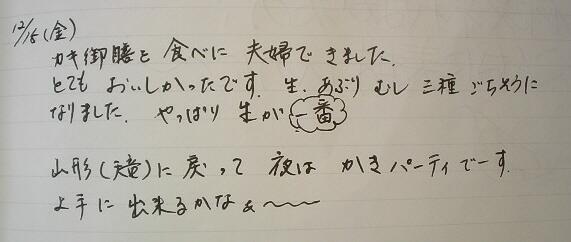 12/15(金)
カキ御膳を食べに夫婦できました。
とてもおいしかったです。生、あぶり むし 三種 ごちそうに
なりました。やっぱり生が一番
山形(天童)に戻って夜はかきパーティでーす。
上手に出来るかなぁ〜〜〜